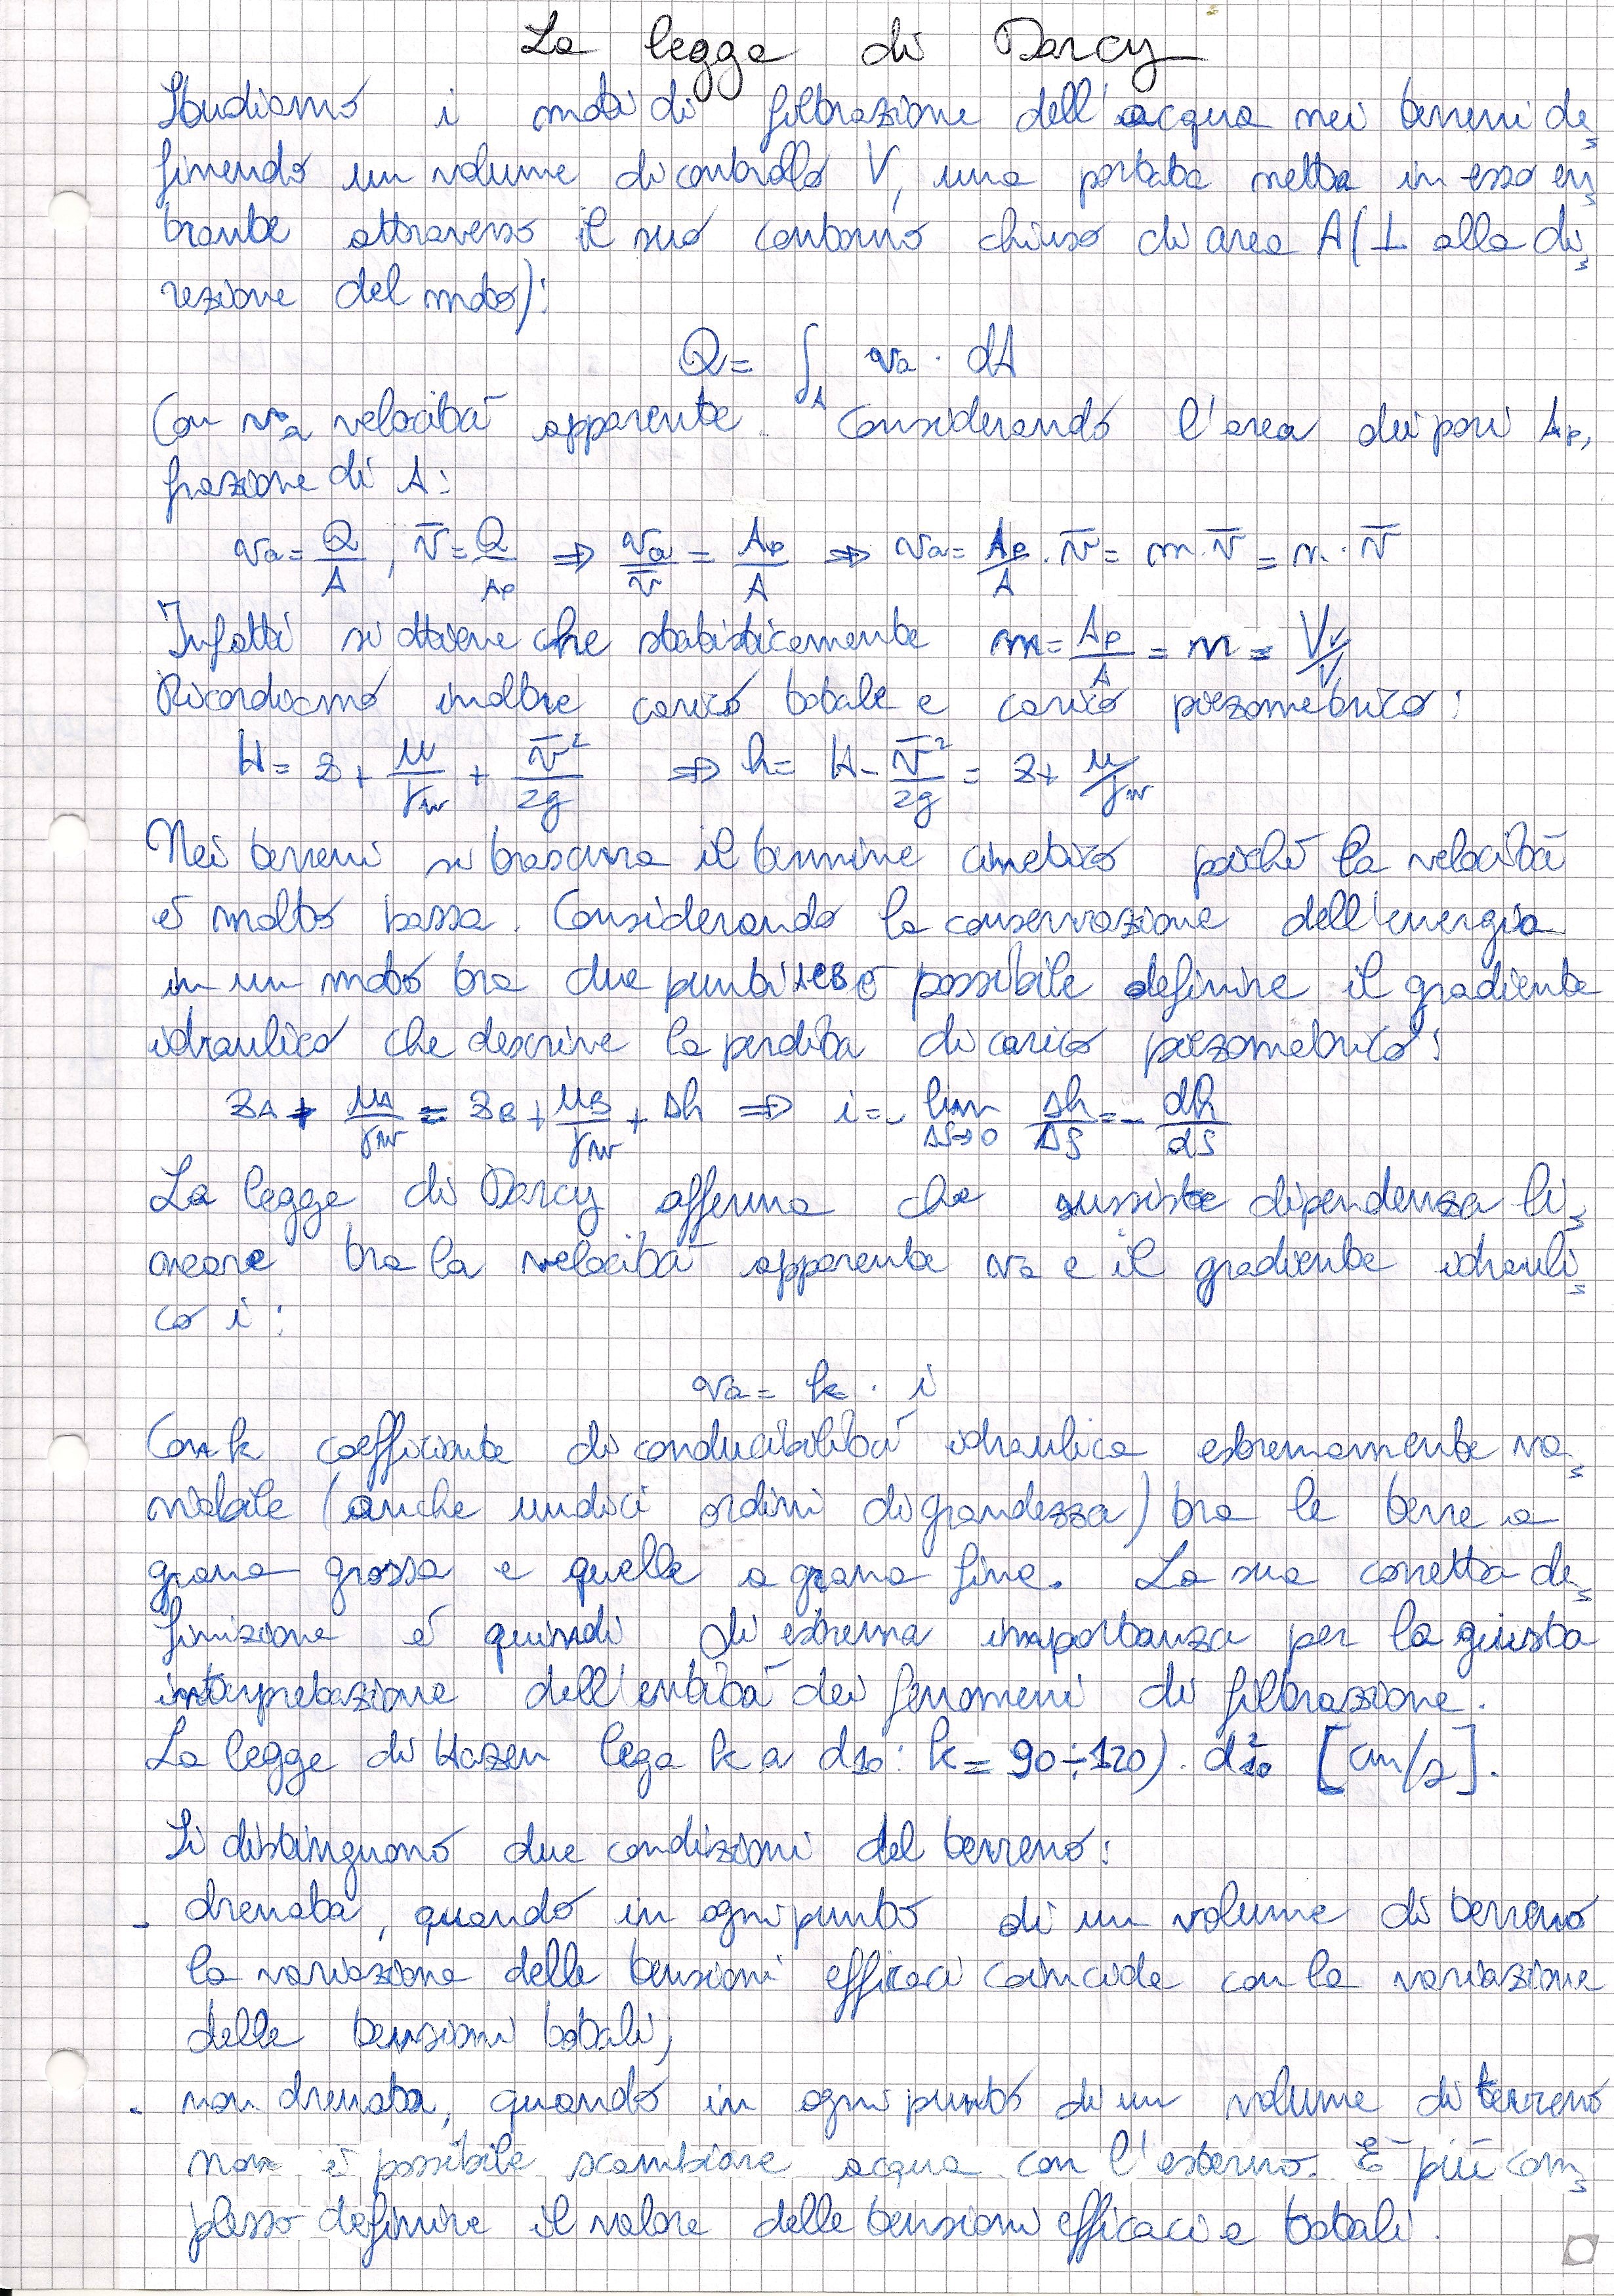 La legge di Darcy
Studiamo i moti di filtrazione dell'acqua nei terreni de
finendo un volume di controllo V, una portata netta in esso en
trante attraverso il suo contorno chiuso di area A (⊥ alla di
rezione del moto):
Q = ∫_A va · dA
Con va velocità apparente. Considerando l'area dei pori Ap,
frazione di A:
va = Q/A , v̄ = Q/Ap ⇒ va/v̄ = Ap/A ⇒ va = Ap/A · v̄ = m · v̄ = n · v̄
Infatti si ottiene che statisticamente m = Ap/A = n = Vv/V
Ricordiamo inoltre carico totale e carico piezometrico:
H = z + u/γw + v̄²/2g ⇒ h = H - v̄²/2g = z + u/γw
Nei terreni si trascura il termine cinetico poiché la velocità
è molto bassa. Considerando la conservazione dell'energia
in un moto tra due punti A e B è possibile definire il gradiente
idraulico che descrive la perdita di carico piezometrico:
zA + uA/γw = zB + uB/γw + Δh ⇒ i = - lim ΔS→0 Δh/ΔS = - dh/dS
La legge di Darcy afferma che sussiste dipendenza li
neare tra la velocità apparente va e il gradiente idrauli
co i:
va = k · i
Con k coefficiente di conducibilità idraulica estremamente va
riabile (anche undici ordini di grandezza) tra le terre a
grana grossa e quelle a grana fine. La sua corretta de
finizione è quindi di estrema importanza per la giusta
interpretazione dell'entità dei fenomeni di filtrazione.
La legge di Hazen lega k a d10: k = 90÷120) · d²10 [cm/s].
Si distinguono due condizioni del terreno:
- drenata, quando in ogni punto di un volume di terreno
la variazione delle tensioni efficaci coincide con la variazione
delle tensioni totali;
- non drenata, quando in ogni punto di un volume di terreno
non è possibile scambiare acqua con l'esterno. È più com
plesso definire il valore delle tensioni efficaci e totali.